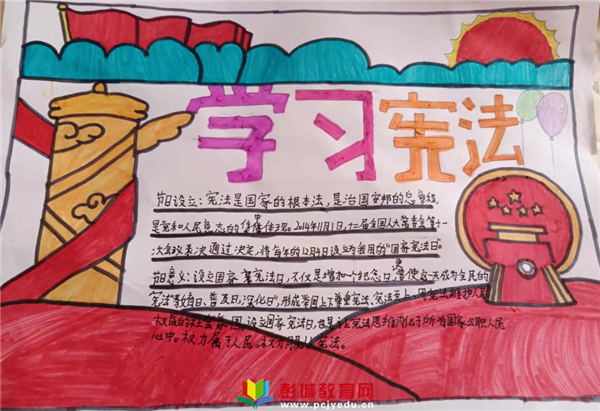 学习宪法
节日设立:宪法是国家的根本法,是治国安邦的总章程,
是党和人民意志的集中体现。2014年11月1日,十二届全国人大常委会第十一
次会议表决通过决定,将每年的12月4日设立为我国的"国家宪法日"
节日意义:设立国家宪法日,不仅是增加一个纪念日,更使这一天成为全民的
宪法"教育日、普及日、深化日",形成举国上下尊重宪法、宪法至上、用宪法维护人民
权益的社会氛围。设立国家宪法日,也是让宪法思维内化于所有国家公职人员
心中。权力属于人民,权力服从宪法。
彭城教育网
www.pcjyedu.cn